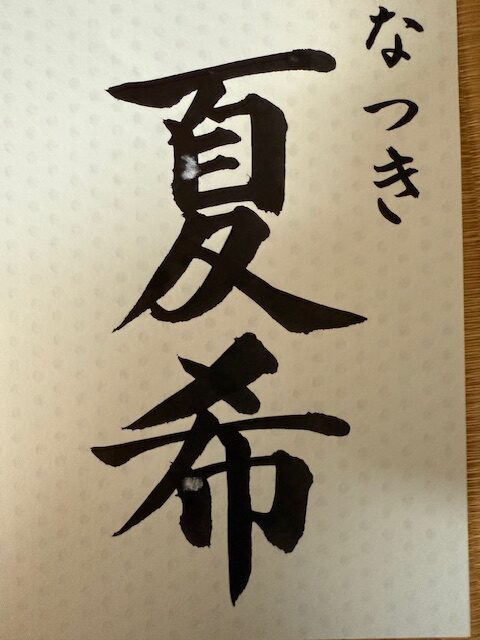 なつき
夏希